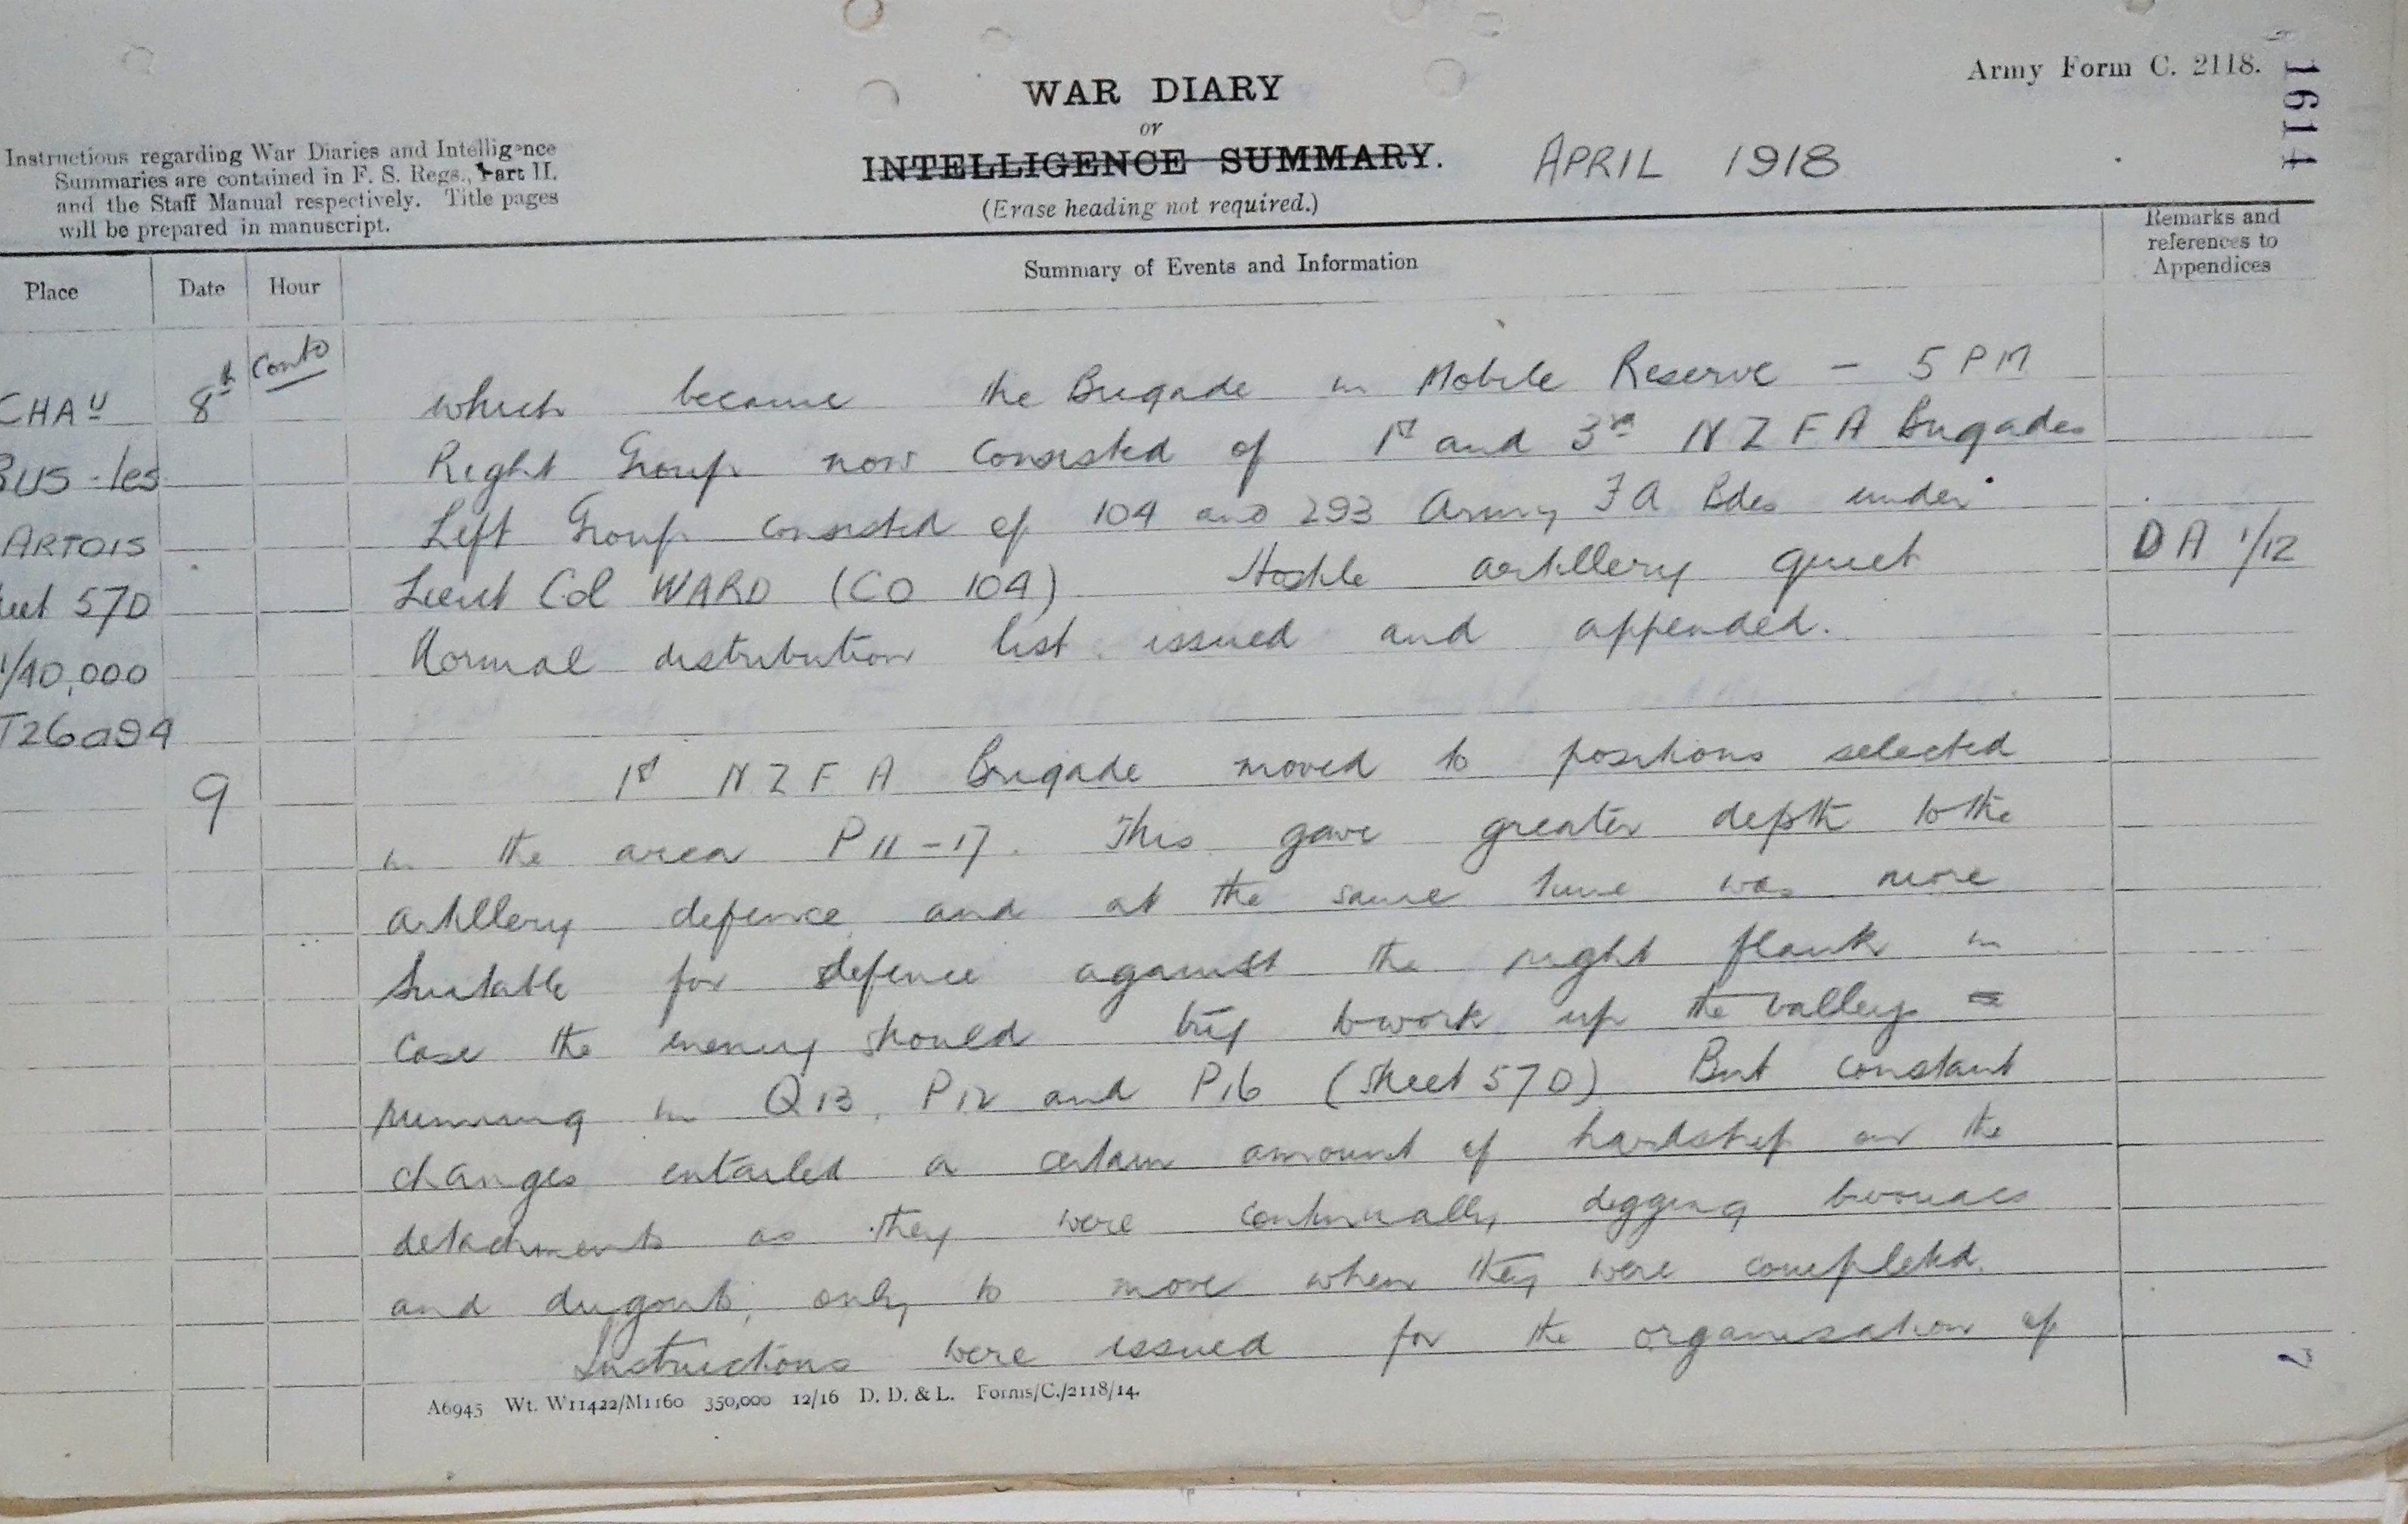 Army Form C. 2118.
1614
WAR DIARY
or
INTELLIGENCE SUMMARY.
APRIL 1918
(Erase heading not required.)
Instructions regarding War Diaries and Intelligence
Summaries are contained in F. S. Regs., Part II.
and the Staff Manual respectively. Title pages
will be prepared in manuscript.
Place
Date
Hour
Summary of Events and Information
Remarks and
references to
Appendices
CHAU
BUS-les
ARTOIS
57D
1/40,000
T26a94
8th Contd
which became the Brigade in Mobile Reserve – 5 PM
Right Group now consisted of 1st and 3rd N Z F A Brigades
Left Group consisted of 104 and 293 Army F A Bdes under
Lieut Col WARD (CO 104) Hostile artillery quiet
DA 1/12
Normal distribution list issued and appended.
9
1st N Z F A Brigade moved to positions selected
in the area P11-17. This gave greater depth to the
artillery defence and at the same time was more
suitable for defence against the right flank in
case the enemy should try to work up the valleys
running in Q13, P12 and P16 (Sheet 57D) But constant
changes entailed a certain amount of hardship on the
detachments as they were continually digging bivouacs
and dugouts, only to move when they were completed.
Instructions were issued for the organisation of
A6945 Wt. W11422/M1160 350,000 12/16 D. D. & L. Forms/C./2118/14.